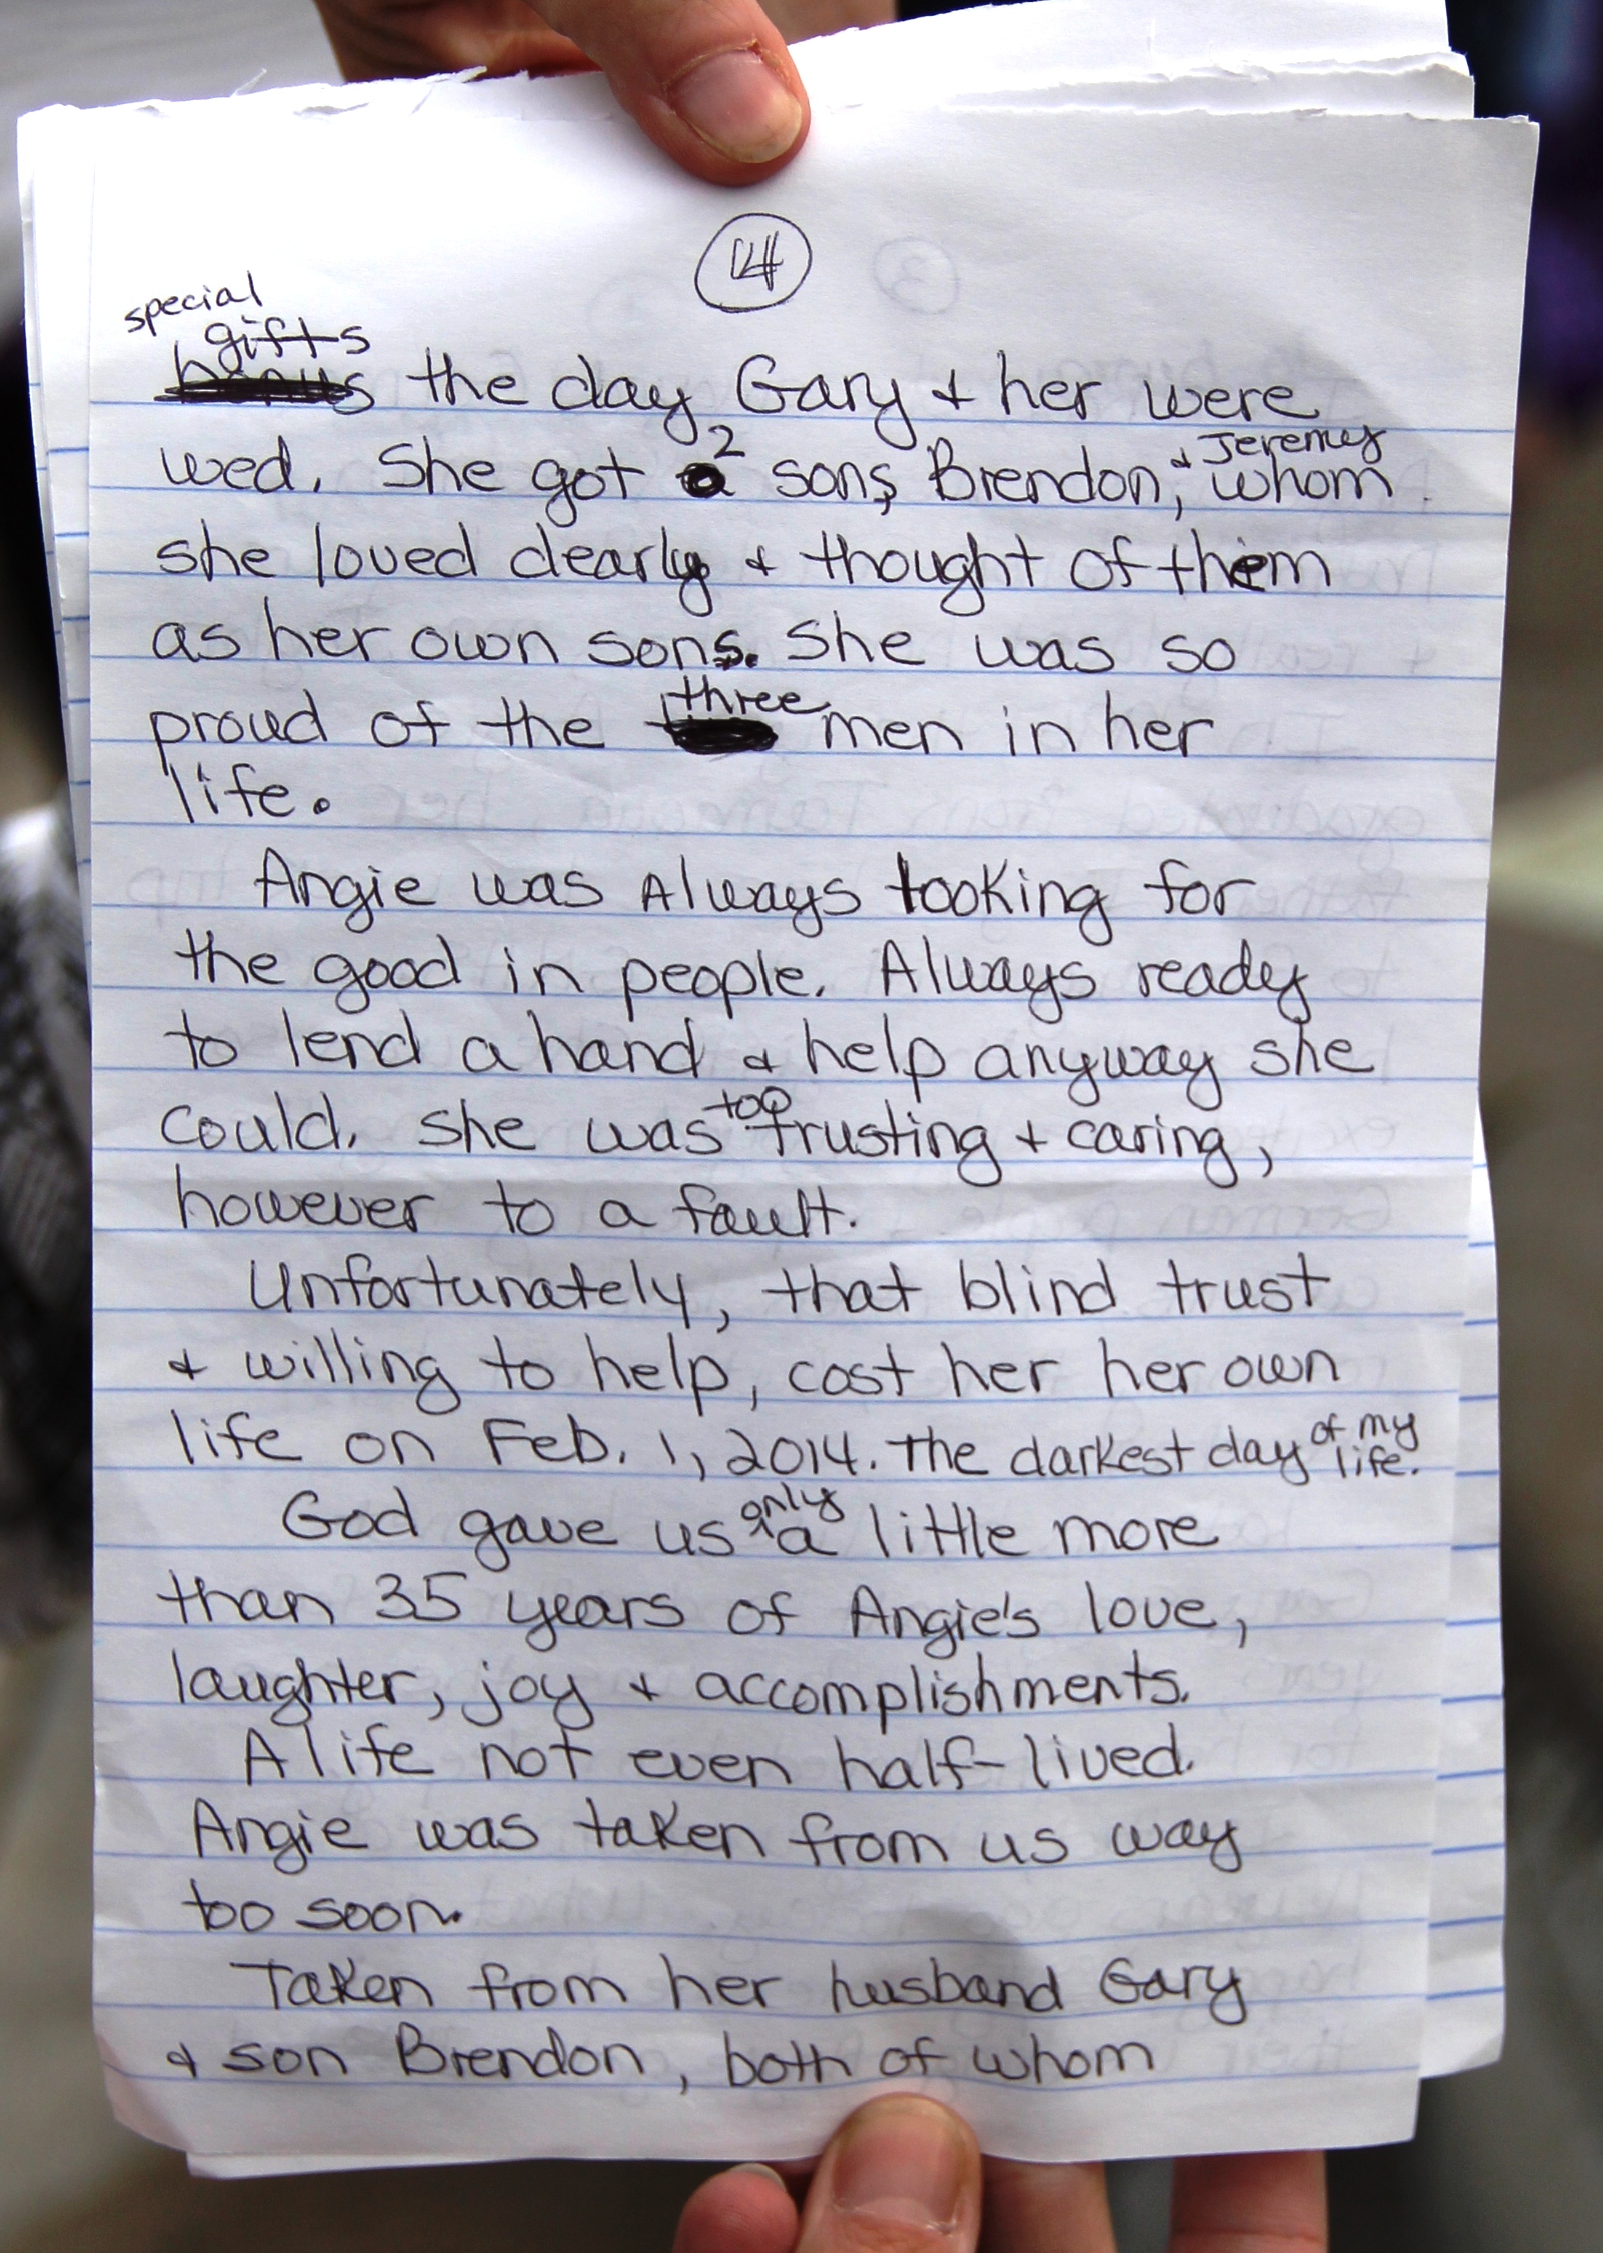 4
special
gifts
bonus the day Gary & her were
wed. She got 2 sons, Brendon, & Jeremy whom
she loved dearly & thought of them
as her own sons. She was so
proud of the three men in her
life.
Angie was Always looking for
the good in people. Always ready
to lend a hand & help anyway she
could. She was too trusting & caring,
however to a fault.
Unfortunately, that blind trust
& willing to help, cost her her own
life on Feb. 1, 2014. The darkest day of my life.
God gave us only a little more
than 35 years of Angie's love,
laughter, joy & accomplishments.
A life not even half-lived.
Angie was taken from us way
too soon.
Taken from her husband Gary
& son Brendon, both of whom